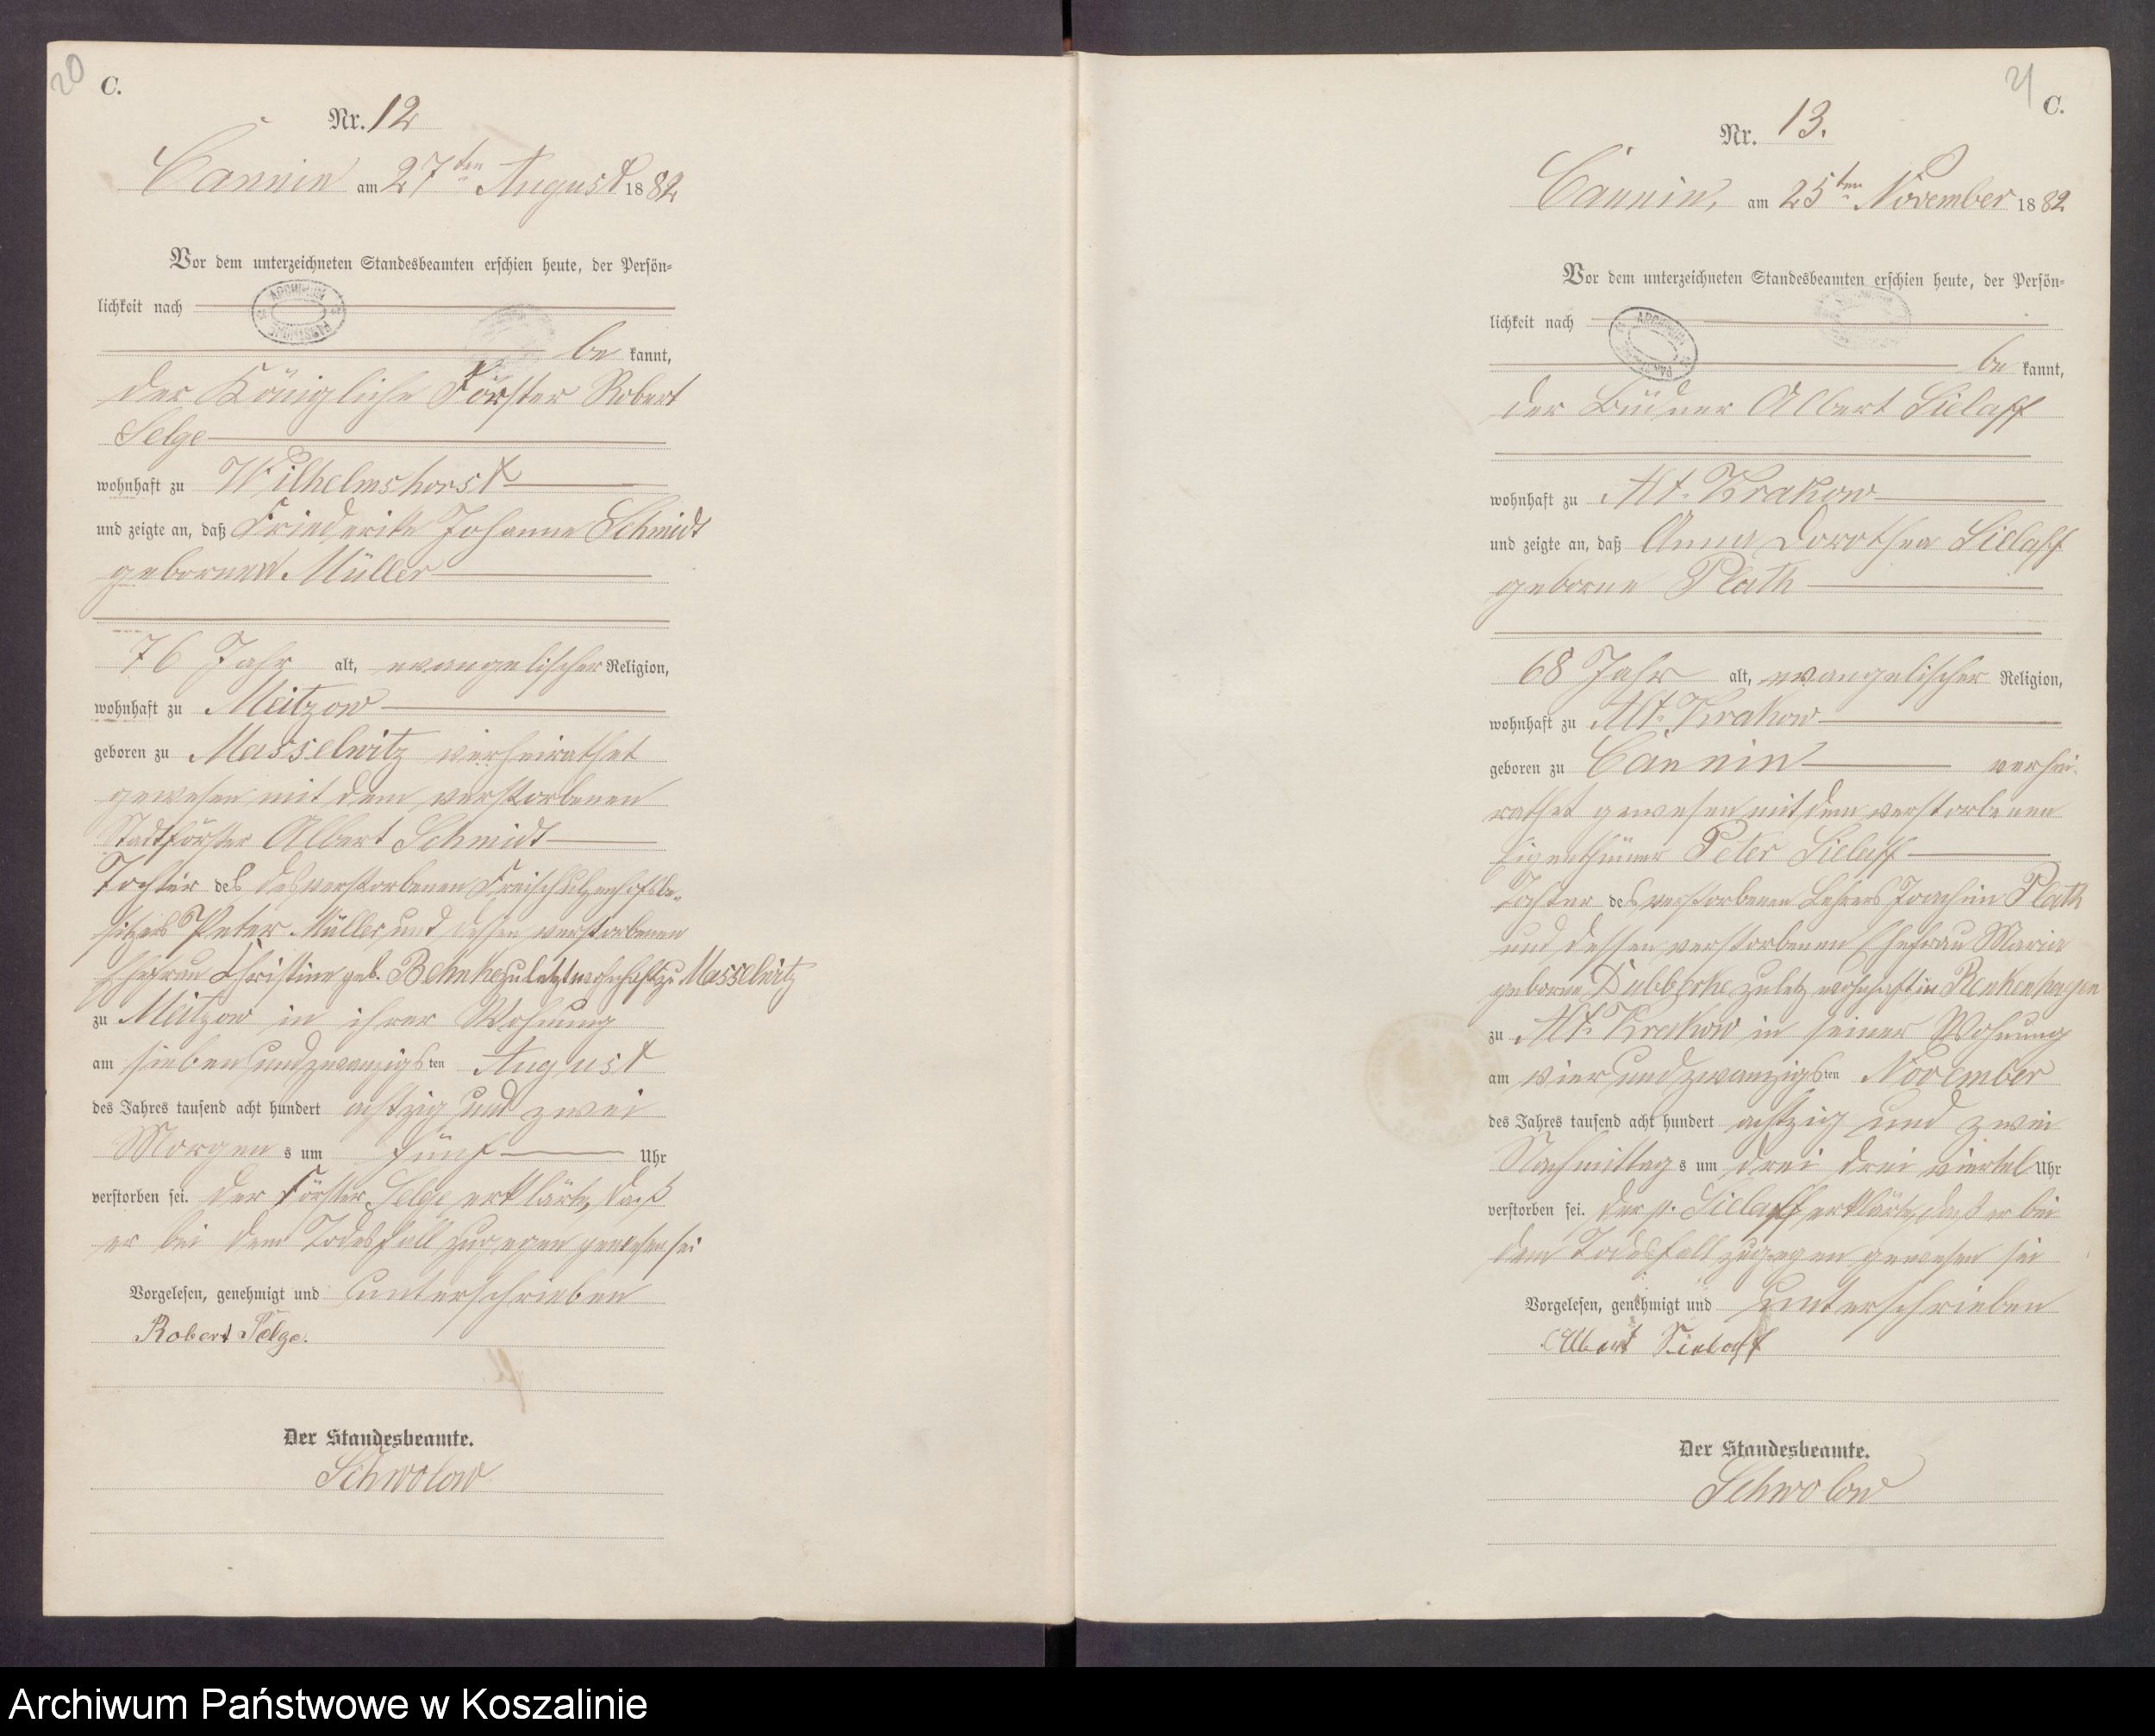 20
C.
Nr. 12
Cannin am 27ten August 1882
Vor dem unterzeichneten Standesbeamten erschien heute, der Persön-
lichkeit nach
be kannt,
der Königliche Förster Robert
Selge
wohnhaft zu Wilhelmshorst
und zeigte an, daß Friederike Johanne Schmidt
geborenen Müller
76 Jahr alt, evangelischer Religion,
wohnhaft zu Meitzow
geboren zu Masselwitz verheirathet
gewesen mit dem verstorbenen
Stadtförster Albert Schmidt
Tochter des des verstorbenen Freischulzenhofsbe-
sitzers Peter Müller und dessen verstorbenen
Ehefrau Christine geb. Behnke zuletzt wohnhaft zu Masselwitz
zu Meitzow in ihrer Wohnung
am sieben und zwanzigsten August
des Jahres tausend acht hundert achtzig und zwei
Morgens um fünf Uhr
verstorben sei. Der Förster Selge erklärte, daß
er bei dem Todesfall zugegen gewesen sei
Vorgelesen, genehmigt und unterschrieben
Robert Selge.
Der Standesbeamte.
Schwolow
21
C.
Nr. 13.
Cannin, am 25ten November 1882
Vor dem unterzeichneten Standesbeamten erschien heute, der Persön-
lichkeit nach
be kannt,
der Büdner Albert Sielaff
wohnhaft zu Alt. Krakow
und zeigte an, daß Anna Dorothea Sielaff
geborne Plath
68 Jahr alt, evangelischer Religion,
wohnhaft zu Alt. Krakow
geboren zu Cannin verhei-
rathet gewesen mit dem verstorbenen
Eigenthümer Peter Sielaff
Tochter des verstorbenen Lehrers Joachim Plath
und dessen verstorbenen Ehefrau Maria
geborne Dubberke zuletz wohnhaft in Renkenhagen
zu Alt. Krakow in seiner Wohnung
am vier und zwanzigsten November
des Jahres tausend acht hundert achtzig und zwei
Nachmittags um drei drei viertel Uhr
verstorben sei. Der p. Sielaff erklärte, daß er bei
dem Todesfall zugegen gewesen sei
Vorgelesen, genehmigt und unterschrieben
Albert Sielaff
Der Standesbeamte.
Schwolow
Archiwum Państwowe w Koszalinie